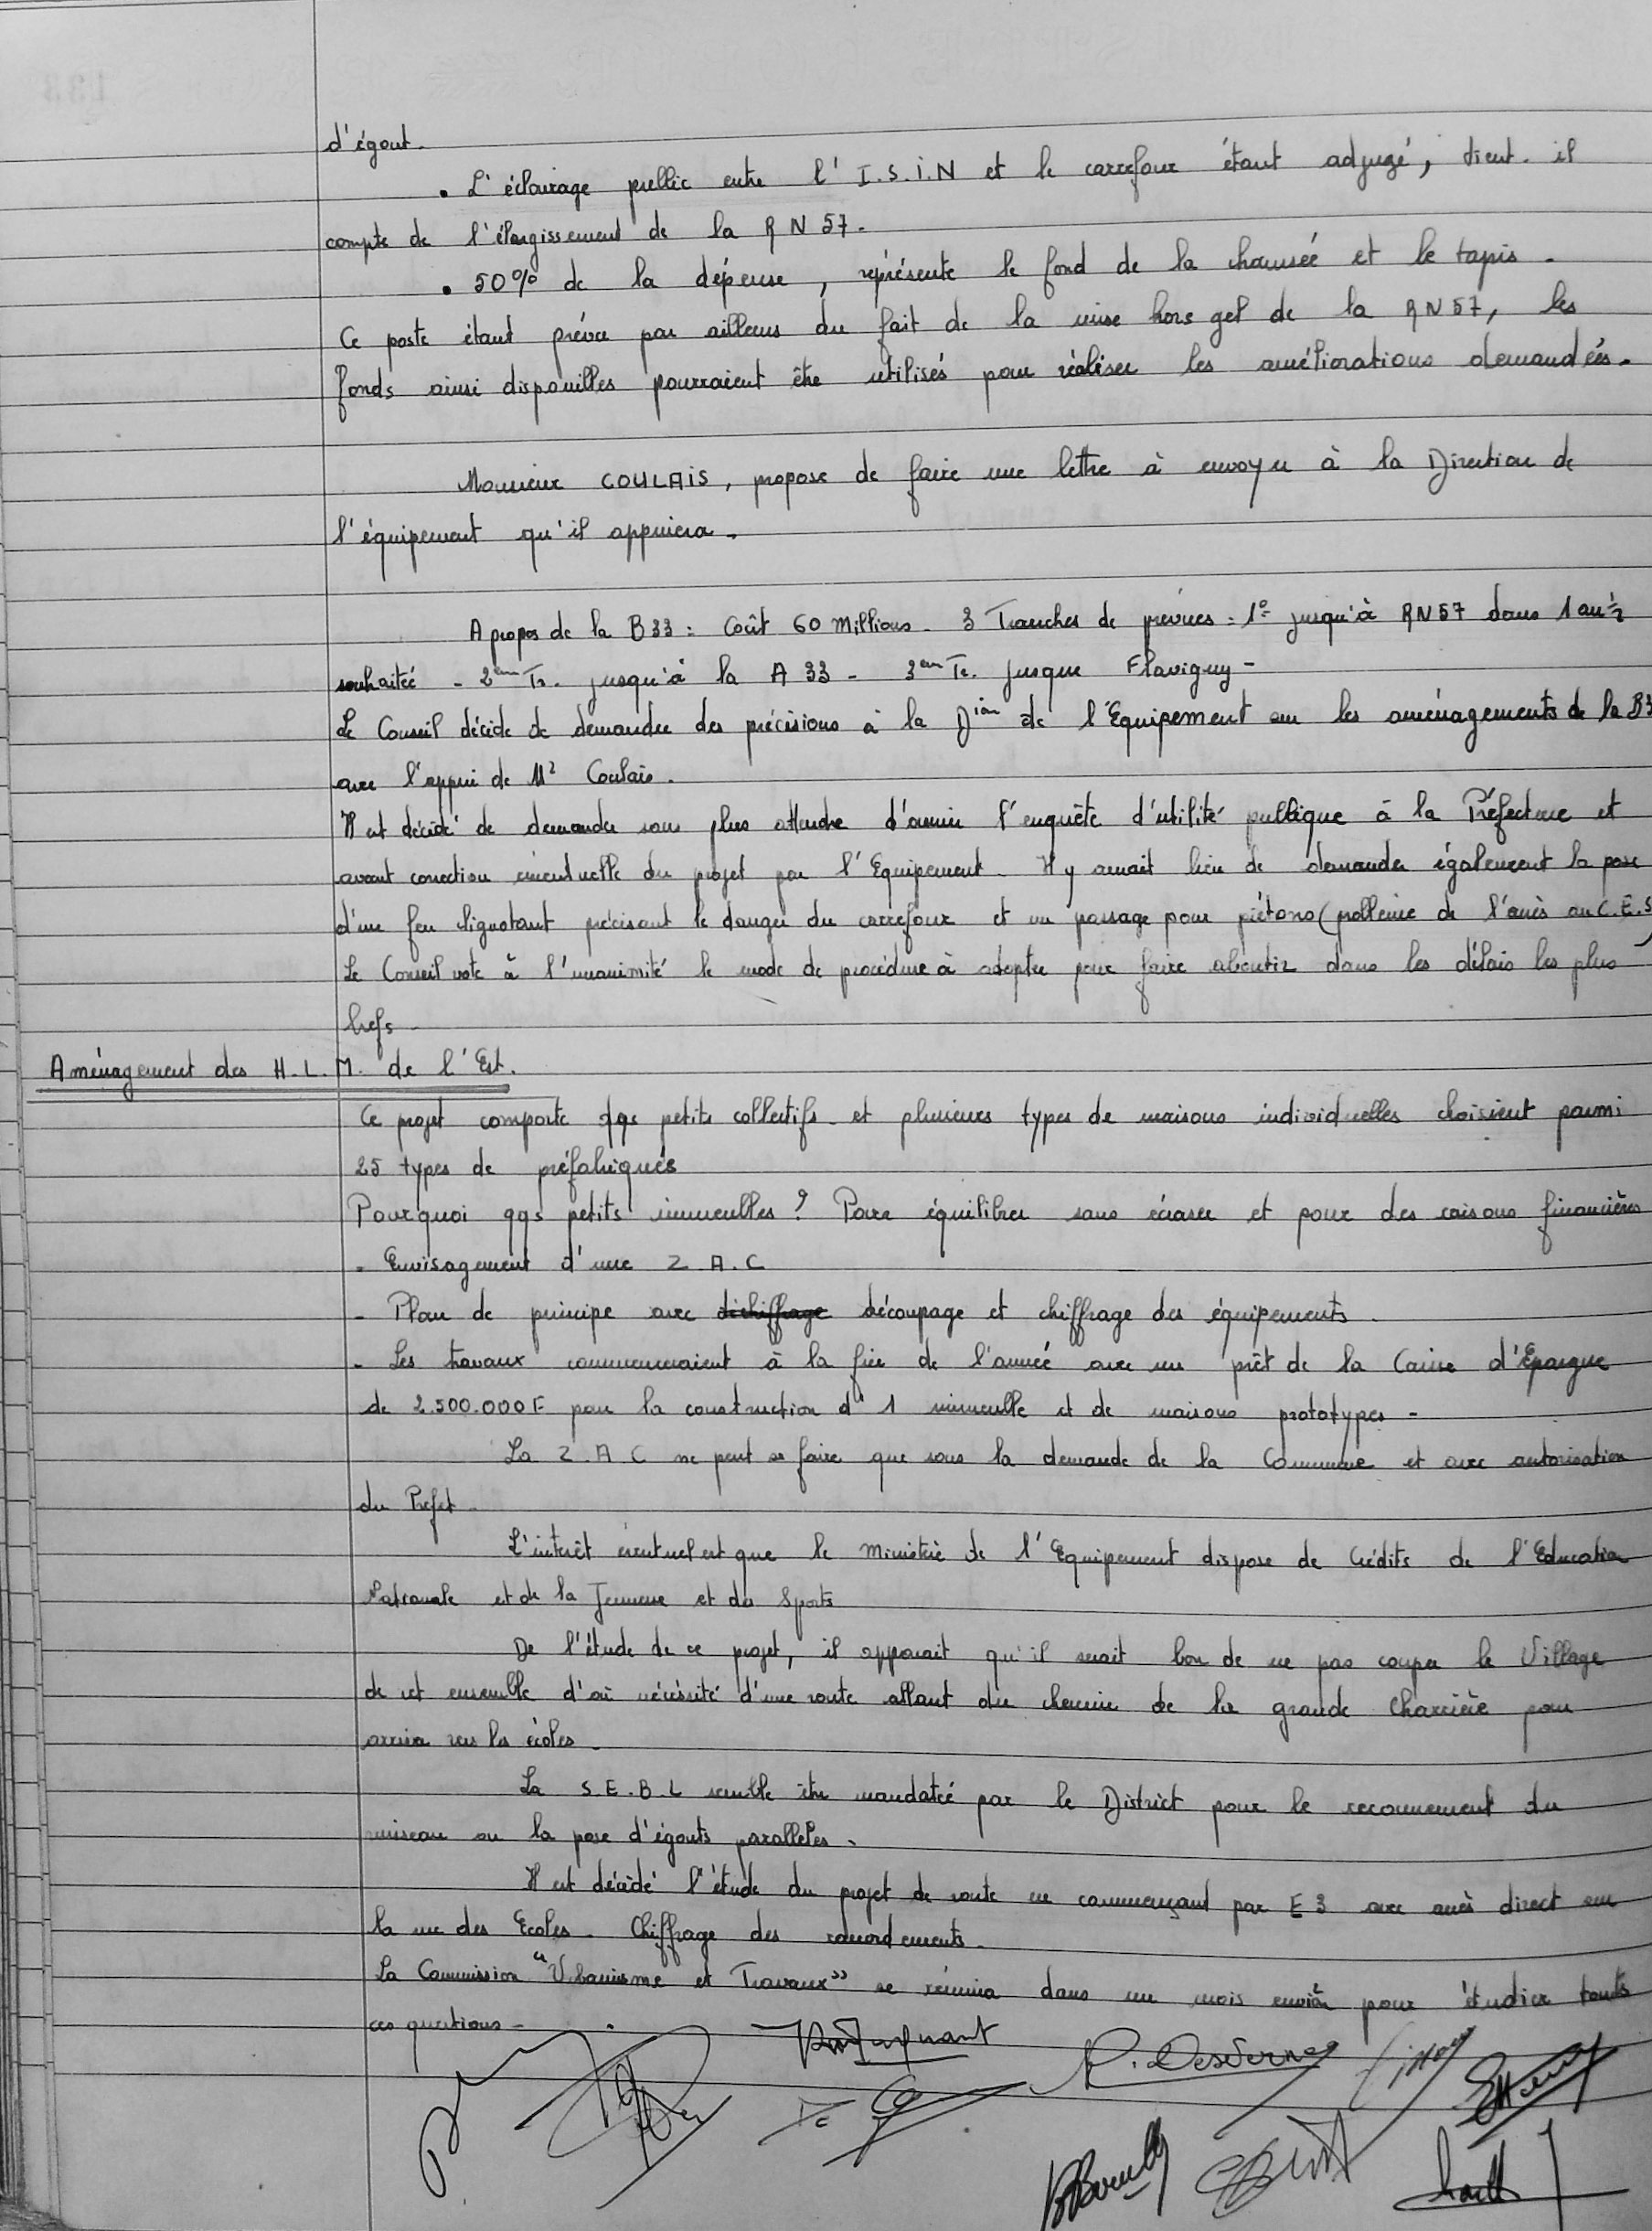 d'égout.
• L'éclairage public entre l'I.S.I.N et le carrefour étant adjugé, tient-il
compte de l'élargissement de la RN 57.
• 50% de la dépense, représente le fond de la chaussée et le tapis.
Ce poste étant prévu par ailleurs du fait de la mise hors gel de la RN 57, les
fonds ainsi disponibles pourraient être utilisés pour réaliser les améliorations demandées.
Monsieur COULAIS, propose de faire une lettre à envoyer à la Direction de
l'équipement qu'il appuiera.
A propos de la B33 : Coût 60 Millions - 3 Tranches de prévues : 1° jusqu'à RN57 dans 1 an ½
souhaitée - 2ème Tr. jusqu'à la A 33 - 3ème Tr. jusque Flavigny -
Le Conseil décide de demander des précisions à la Dion de l'Equipement sur les aménagements de la B3
avec l'appui de Mr Coulais.
Il est décidé de demander sans plus attendre d'ouvrir l'enquête d'utilité publique à la Préfecture et
avant correction éventuelle du projet par l'Equipement. Il y aurait lieu de demander également la pose
d'un feu clignotant précisant le danger du carrefour et un passage pour piétons (problème de l'accès au C.E.S)
Le Conseil vote à l'unanimité le mode de procédure à adopter pour faire aboutir dans les délais les plus
brefs -
Aménagement des H.L.M. de l'Est.
Ce projet comporte qqs petits collectifs et plusieurs types de maisons individuelles choisient parmi
25 types de préfabriqués
Pourquoi qqs petits immeubles ? Pour équilibrer sans écraser et pour des raisons financières
- Envisagement d'une Z.A.C
- Plan de principe avec déchiffrage découpage et chiffrage des équipements.
- Les travaux commenceraient à la fin de l'année avec un prêt de la Caisse d'Epargne
de 2.500.000F pour la construction d'1 immeuble et de maisons prototypes -
La Z.A.C ne peut se faire que sous la demande de la Commune et avec autorisation
du Préfet -
L'intérêt éventuel est que le Ministère de l'Equipement dispose de Crédits de l'Education
Nationale et de la Jeunesse et des Sports
De l'étude de ce projet, il apparait qu'il serait bon de ne pas couper le Village
de cet ensemble d'où nécéssité d'une route allant du chemin de la grande Charrière pour
arriver vers les écoles.
La S.E.B.L semble être mandatée par le District pour le recouvrement du
ruisseau ou la pose d'égouts parallèles.
Il est décidé l'étude du projet de route en commençant par E3 avec accès direct sur
la rue des Ecoles. Chiffrage des raccordements.
La Commission "Urbanisme et Travaux" se réunira dans un mois environ pour étudier toutes
ces questions -